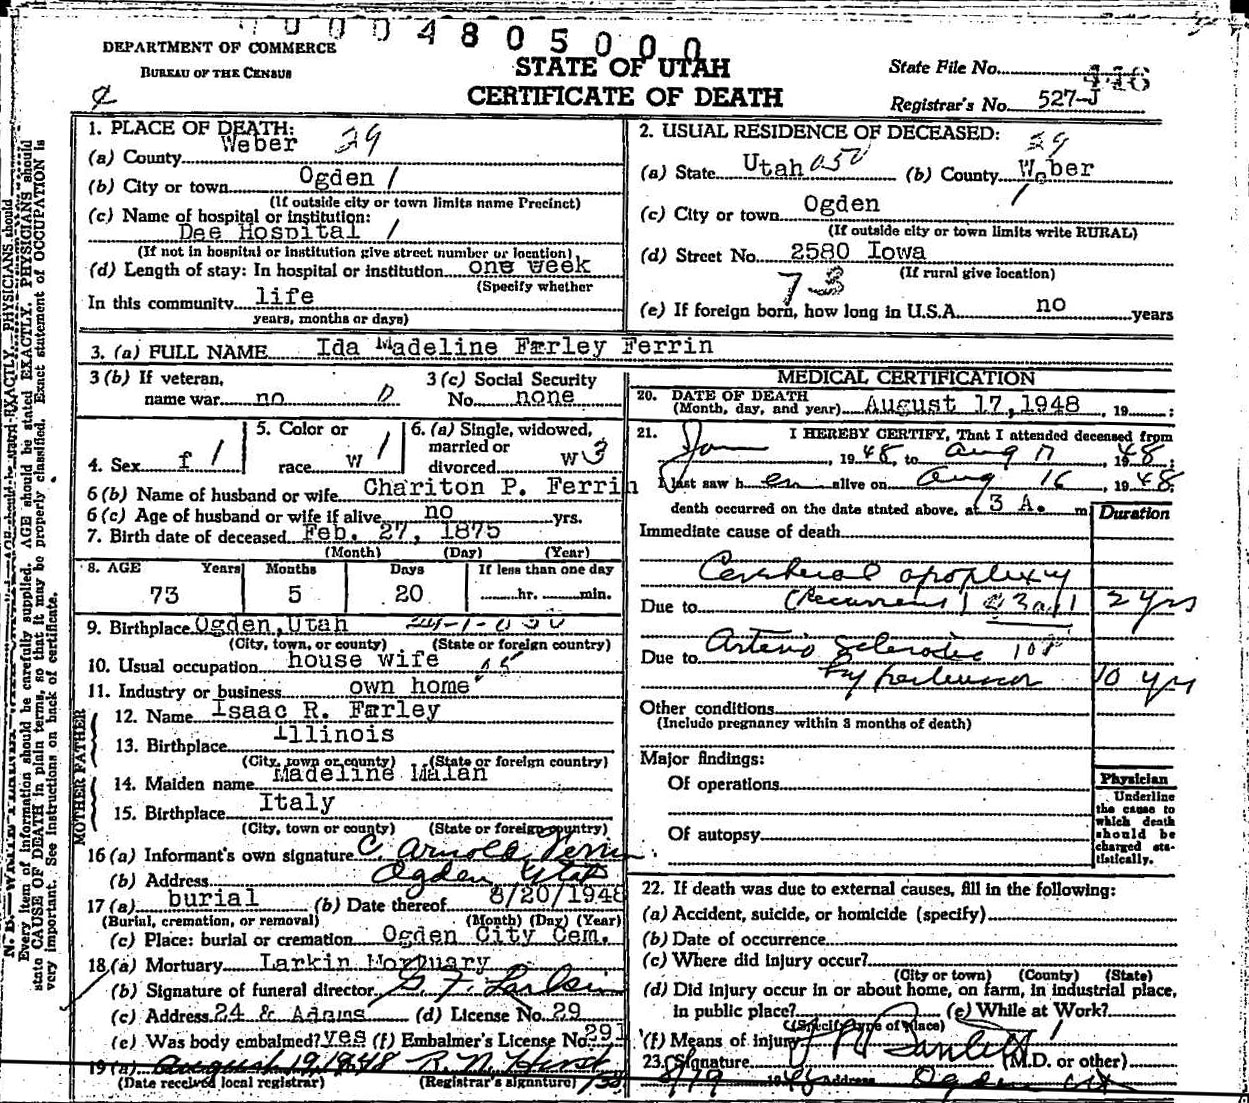 0004805000
DEPARTMENT OF COMMERCE
BUREAU OF THE CENSUS
STATE OF UTAH
CERTIFICATE OF DEATH
State File No.
Registrar's No. 527-J
1. PLACE OF DEATH:
(a) County Weber 29
(b) City or town Ogden 1
(If outside city or town limits name Precinct)
(c) Name of hospital or institution:
Dee Hospital 1
(If not in hospital or institution give street number or location)
(d) Length of stay: In hospital or institution one week
(Specify whether
In this community life
years, months or days)
2. USUAL RESIDENCE OF DECEASED:
29
(a) State Utah 050 (b) County Weber
(c) City or town Ogden 1
(If outside city or town limits write RURAL)
(d) Street No. 2580 Iowa
(If rural give location)
73
(e) If foreign born, how long in U.S.A. no years
3. (a) FULL NAME Ida Madeline Farley Ferrin
3 (b) If veteran,
name war no
3 (c) Social Security
No. none
4. Sex f 1
5. Color or
race W 1
6. (a) Single, widowed,
married or
divorced W 3
6 (b) Name of husband or wife Chariton P. Ferrin
6 (c) Age of husband or wife if alive no yrs.
7. Birth date of deceased Feb. 27, 1875
(Month) (Day) (Year)
8. AGE Years Months Days If less than one day
73 5 20 hr. min.
9. Birthplace Ogden, Utah
(City, town, or county) (State or foreign country)
10. Usual occupation house wife
11. Industry or business own home
FATHER
12. Name Isaac R. Farley
13. Birthplace Illinois
(City, town or county) (State or foreign country)
MOTHER
14. Maiden name Madeline Malan
15. Birthplace Italy
(City, town or county) (State or foreign country)
16 (a) Informant's own signature C Arnold Ferrin
(b) Address Ogden Utah
17 (a) burial (b) Date thereof 8/20/1948
(Burial, cremation, or removal) (Month) (Day) (Year)
(c) Place: burial or cremation Ogden City Cem.
18 (a) Mortuary Larkin Mortuary
(b) Signature of funeral director G. F. Larkin
(c) Address 24 & Adams (d) License No. 29
(e) Was body embalmed? yes (f) Embalmer's License No. 291
19 (a) August 19, 1948
(Date received local registrar) (Registrar's signature)
MEDICAL CERTIFICATION
20. DATE OF DEATH
(Month, day, and year) August 17, 1948, 19 ;
21. I HEREBY CERTIFY, That I attended deceased from
Jan, 1948, to Aug 17, 1948;
I last saw h er alive on Aug 16, 1948;
death occurred on the date stated above, at 3 A. m
Duration
Immediate cause of death
Cerebral apoplexy
Due to (Recurrent) 2 yrs
Due to Arterio Sclerosis
hypertension 10 yrs
Other conditions
(Include pregnancy within 3 months of death)
Major findings:
Of operations
Of autopsy
Physician
Underline
the cause to
which death
should be
charged sta-
tistically.
22. If death was due to external causes, fill in the following:
(a) Accident, suicide, or homicide (specify)
(b) Date of occurrence
(c) Where did injury occur?
(City or town) (County) (State)
(d) Did injury occur in or about home, on farm, in industrial place,
in public place? (e) While at Work?
(Specify type of place)
(f) Means of injury
23. Signature (M.D. or other)
8/19 1948 Address Ogden
Every item of information should be carefully supplied. AGE should be stated EXACTLY. PHYSICIANS should
state CAUSE OF DEATH in plain terms, so that it may be properly classified. Exact statement of OCCUPATION is
very important. See instructions on back of certificate.